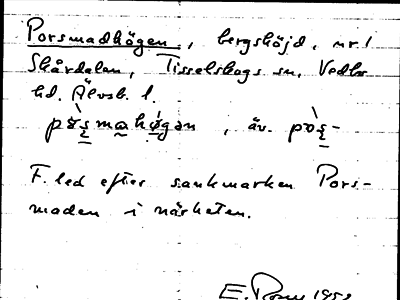 Porsmadhögen, bergshöjd, nr 1
Skårdalen, Tisselskogs sn, Vedbo
hd. Älvsb. l.
pòʂmahø̀gən, äv. pòʂ-
F. led efter sankmarken Pors-
maden i närheten.
E. 1952